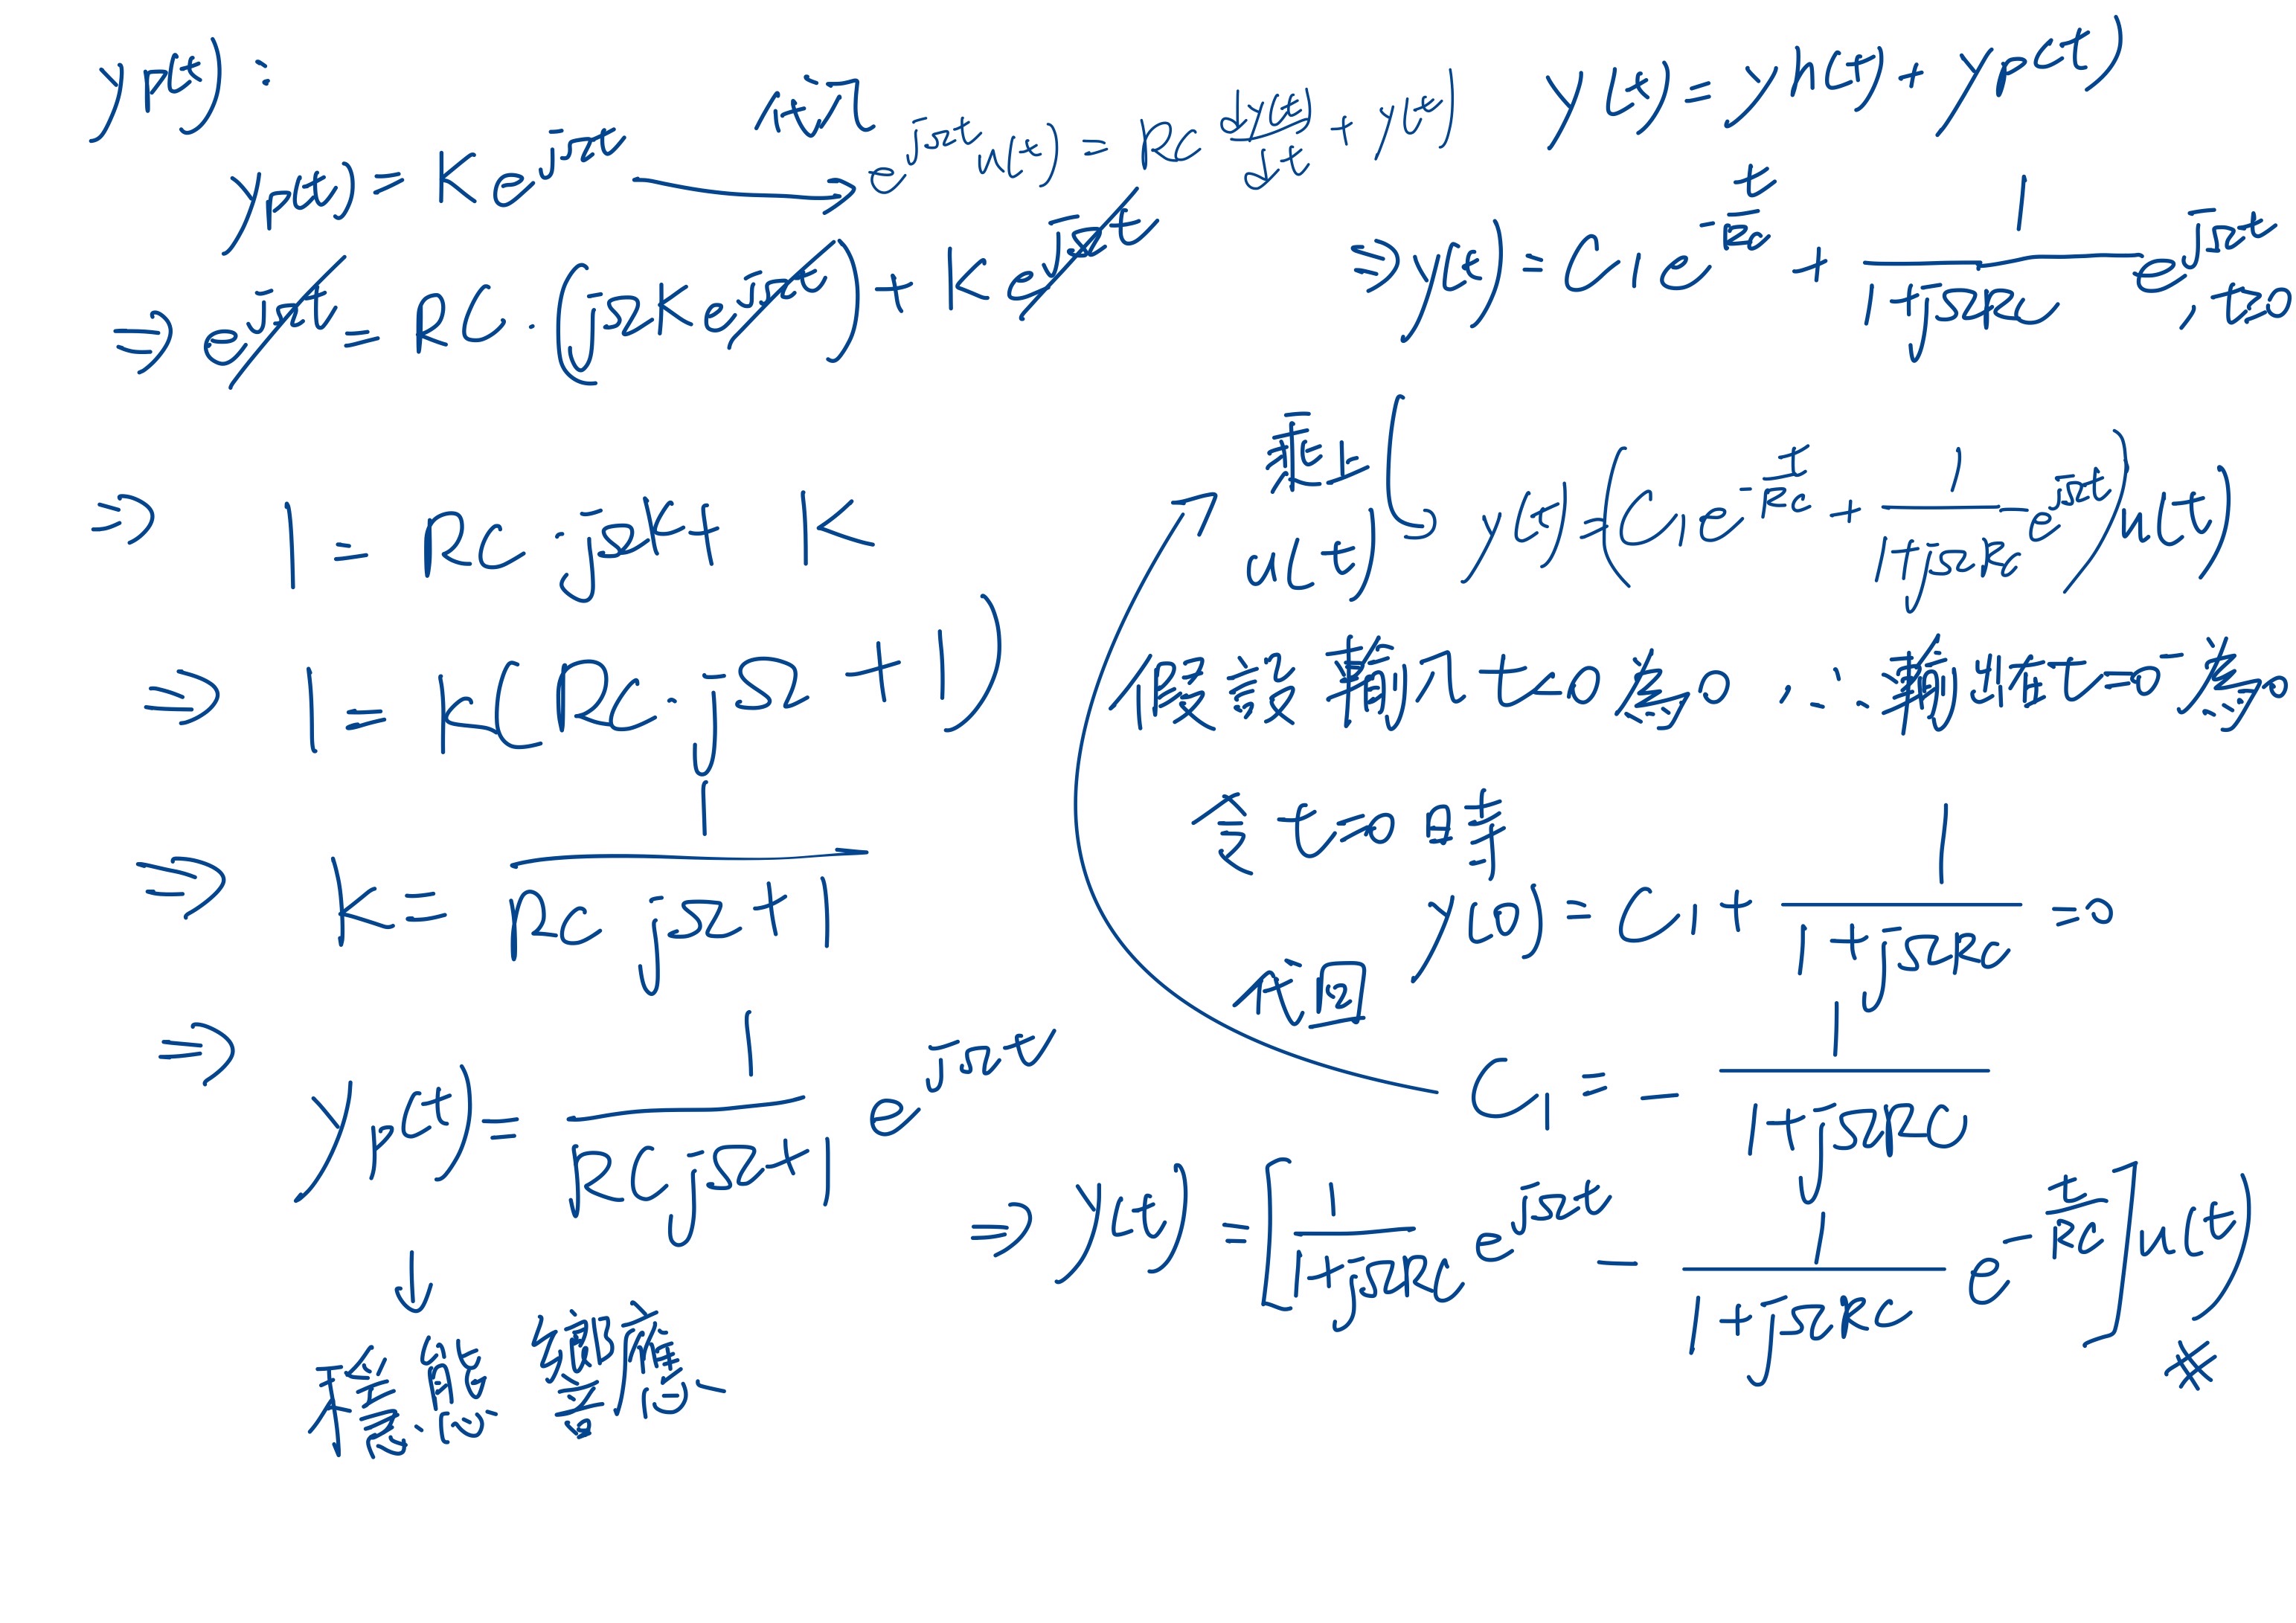 yp(t):
yp(t) = K e^{jΩt} 代入→ e^{jΩt}u(t) = RC dy(t)/dt + y(t)
⇒ e^{jΩt} = RC · (jΩK e^{jΩt}) + K e^{jΩt}
⇒ 1 = RC jΩK + K
⇒ 1 = K(RC · jΩ + 1)
⇒ K = 1/(RC jΩ + 1)
⇒ yp(t) = 1/(RC jΩ + 1) e^{jΩt}
↓
穩態響應
y(t) = yh(t) + yp(t)
⇒ y(t) = C1 e^{-t/RC} + 1/(1+jΩRC) e^{jΩt}, t≥0
乘上u(t) ↳ y(t) = (C1 e^{-t/RC} + 1/(1+jΩRC) e^{jΩt}) u(t)
假設輸入t<0為0, ∴輸出在t=0為0
令t=0時
y(0) = C1 + 1/(1+jΩRC) = 0
代回 C1 = - 1/(1+jΩRC)
⇒ y(t) = [1/(1+jΩRC) e^{jΩt} - 1/(1+jΩRC) e^{-t/RC}] u(t)
※